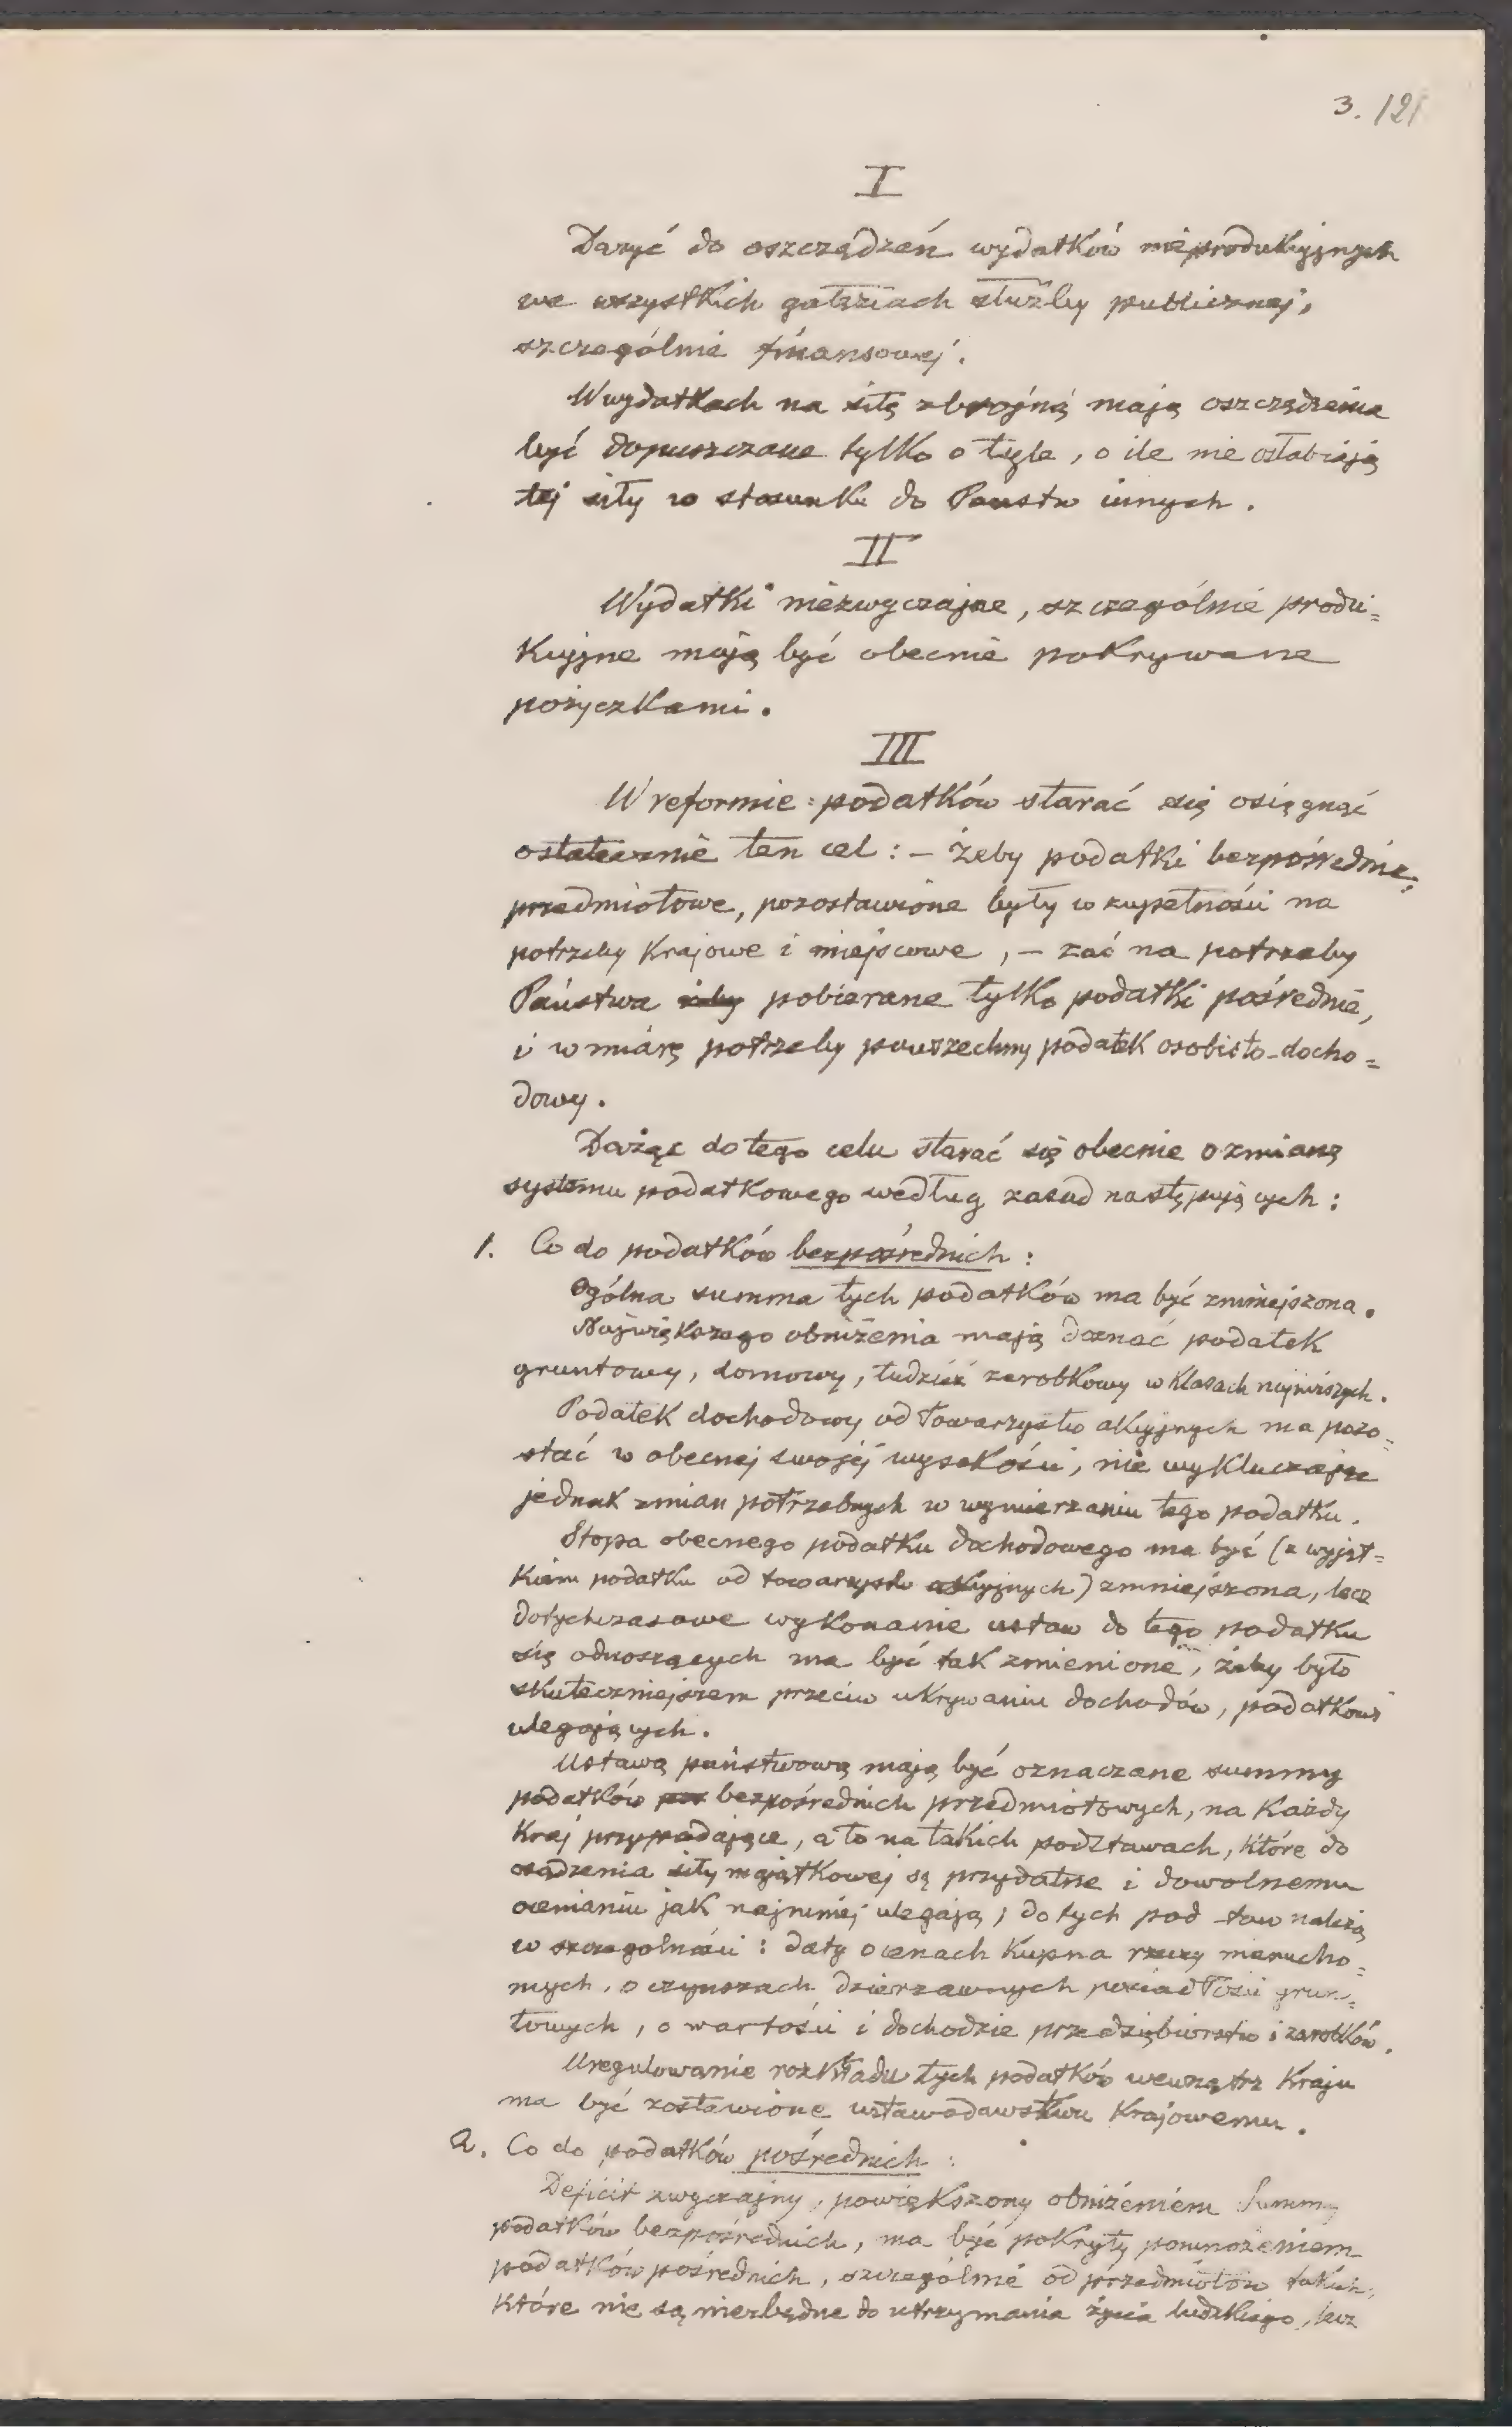 3. 121
I
Dążyć do oszczędzeń wydatków nieprodukcyjnych
we wszystkich gałęziach służby publicznej,
szczególnie finansowej.
W wydatkach na siłę zbrojną mają oszczędzenia
być dopuszczane tylko o tyle, o ile nie osłabiają
tej siły w stosunku do Państw innych.
II
Wydatki niezwyczajne, szczególnie produ=
kcyjne mają być obecnie pokrywane
pożyczkami.
III
W reformie podatków starać się osiągnąć
ostatecznie ten cel: – żeby podatki bezpośrednie,
przedmiotowe, pozostawione były w zupełności na
potrzeby krajowe i miejscowe, – zaś na potrzeby
Państwa pobierane tylko podatki pośrednie,
i w miarę potrzeby powszechny podatek osobisto-docho=
dowy.
Dążąc do tego celu starać się obecnie o zmianę
systemu podatkowego według zasad następujących:
1. Co do podatków bezpośrednich:
Ogólna summa tych podatków ma być zmniejszona.
Największego obniżenia mają doznać podatek
gruntowy, domowy, tudzież zarobkowy w klasach najniższych.
Podatek dochodowy od Towarzystw akcyjnych ma pozo=
stać w obecnej swojej wysokości, nie wykluczając
jednak zmian potrzebnych w wymierzaniu tego podatku.
Stopa obecnego podatku dochodowego ma być (z wyjąt=
kiem podatku od towarzystw akcyjnych) zmniejszona, lecz
dotychczasowe wykonanie ustaw do tego podatku
się odnoszących ma być tak zmienione, żeby było
skuteczniejszem przeciw ukrywaniu dochodów, podatkowi
ulegających.
Ustawą państwową mają być oznaczane summy
podatków bezpośrednich przedmiotowych, na każdy
kraj przypadające, a to na takich podstawach, które do
osądzenia siły majątkowej są przydatne i dowolnemu
ocenianiu jak najmniej ulegają; do tych pod taw należą
w szczególności: daty o cenach kupna rzeczy nierucho=
mych, o czynszach dzierzawnych posiadłości grun=
towych, o wartości i dochodzie przedsiębiorstw i zarobków.
Uregulowanie rozkładu tych podatków wewnątrz kraju
ma być zostawione ustawodawstwu krajowemu.
2. Co do podatków pośrednich:
Deficit zwyczajny, powiększony obniżeniem summy
podatków bezpośrednich, ma być pokryty pomnożeniem
podatków pośrednich, szczególnie od przedmiotów takich,
które nie są niezbędne do utrzymania życia ludzkiego, lecz